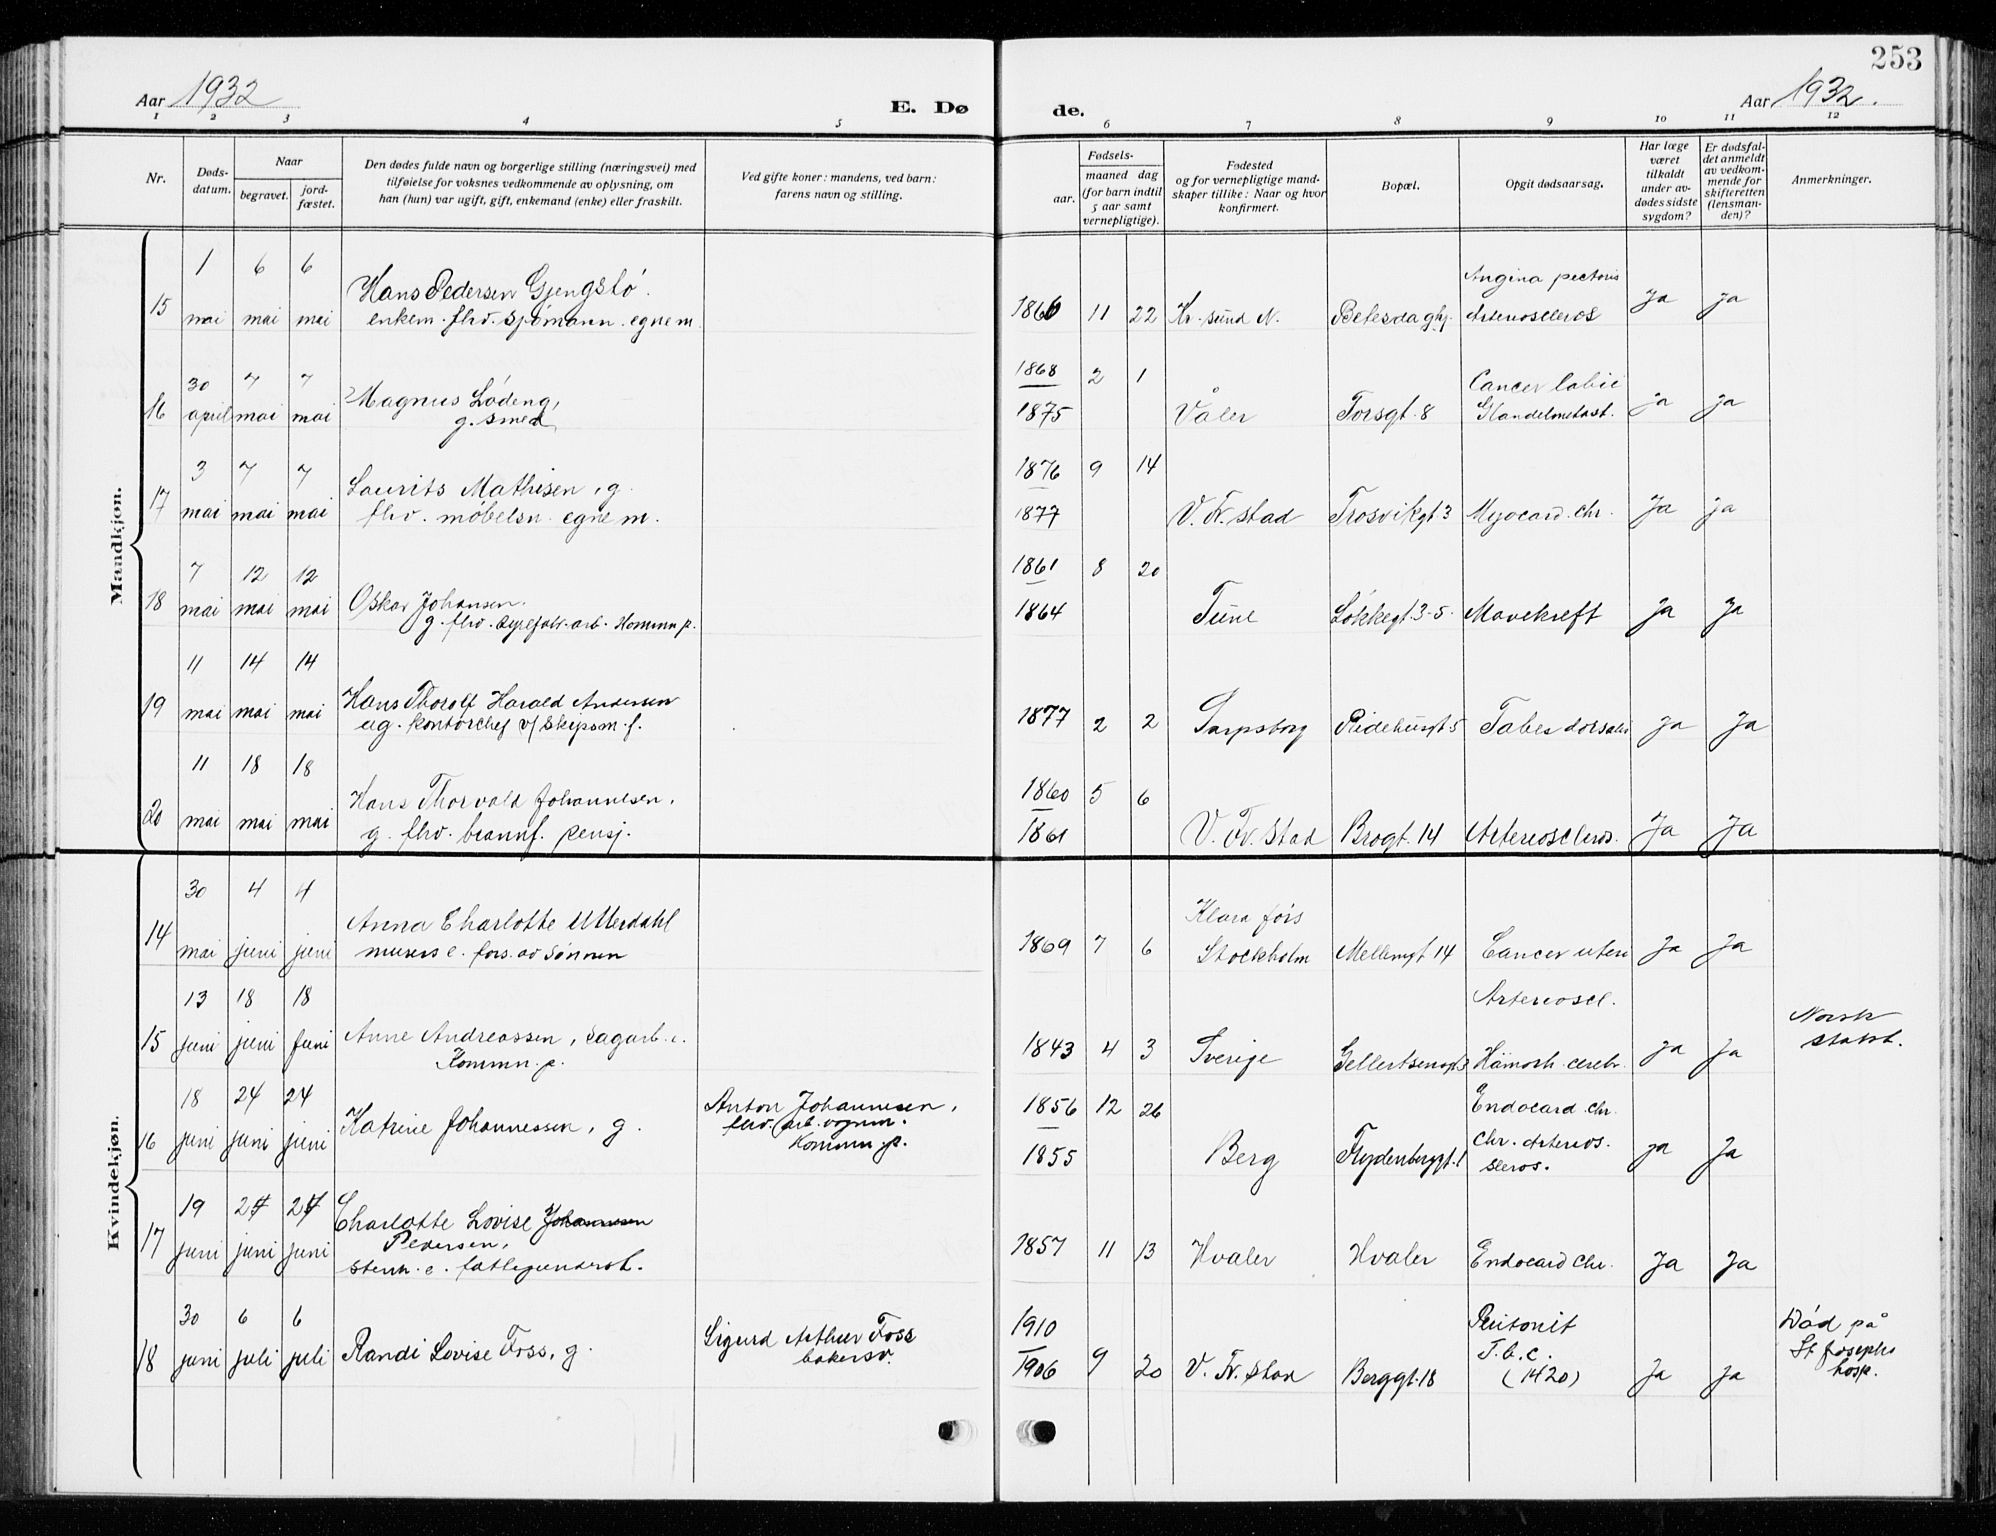 253
Aar 1932
E. Dø
de.
Aar 1932.
1 2 3 4 5 6 7 8 9 10 11 12
Nr.
Døds-
datum.
Naar
begravet.
jord-
fæstet.
Den dødes fulde navn og borgerlige stilling (næringsvei) med
tilføielse for voksnes vedkommende av oplysning, om
han (hun) var ugift, gift, enkemand (enke) eller fraskilt.
Ved gifte koner: mandens, ved barn:
farens navn og stilling.
Fødsels-
aar.
maaned dag
(for barn indtil
5 aar samt
vernepligtige).
Fødested
og for vernepligtige mand-
skaper tillike: Naar og hvor
konfirmert.
Bopæl.
Opgit dødsaarsag.
Har læge
været
tilkaldt
under av-
dødes sidste
sygdom?
Er dødsfal-
det anmeldt
av vedkom-
mende for
skifteretten
(lensman-
den)?
Anmerkninger.
Mandkjøn.
1 6 6 Angina pectoris
Hans Pedersen Gjengstø.
15 mai mai mai enkem. fhv. sjømann. egne m. 1866 11 22 Kr. sund N. Betesda Arterioscleros Ja Ja
30 7 7 1868 2 1 Cancer labii
Magnus Lødeng,
16 april mai mai g. smed 1875 Våler Torsgt. 8 Glandelmetast. ja ja
3 7 7 1876 9 14
Laurits Mathisen, g.
17 mai mai mai fhv. møbelsn. egne m. 1877 V. Fr.stad Trosvikgt 3 Myocard. chr. Ja ja
7 12 12 1861 8 20
18 mai mai mai Oskar Johansen. 1864 Tune Løkkegt. 3-5. Mavekreft Ja Ja
g. fhv. arb. Kommn p.
11 14 14
Hans Thorolf Harald Andersen
19 mai mai mai ug. kontorchef v/ Skipsm. f. 1877 2 2 Sarpsborg Ridehusgt 5 Tabes dorsalis Ja Ja
11 18 18 1860 5 6
Hans Thorvald Johannesen,
20 mai mai mai g. fhv. brannf. pensj. 1861 V. Fr. stad Brogt. 14 Arterioscleros. Ja Ja
Kvindekjøn.
30 4 4 Klara førs
Anna Charlotte Utterdahl
14 mai juni juni murers e. fors. av sønnen 1869 7 6 Stockholm Mellemgt 14 Cancer uteri Ja Ja
13 18 18 Arterioscl. Norsk
15 juni juni juni Anne Andreassen, sagarb. e. 1843 4 3 Sverige Gellertsensgt 3 Hämorh. cerebr. Ja Ja statsb.
Kommn. p.
18 24 24 Anton Johannesen, 1856 12 26 Endocard. chr.
16 juni juni juni Katrine Johannessen, g. fhv. arb. vognm. Kommn p. 1855 Berg Flydenborggt. 1 Chr. Arterios-
scleros. ja Ja
19 24 24 Charlotte Lovise Johannesen
17 juni juni juni Pedersen, 1857 11 13 Hvaler Hvaler Endocard chr. Ja Ja
stenh. e. fattigunderst.
30 6 6 Sigurd Arthur Foss 1910 Peritonit Død på
18 juni juli juli Randi Lovise Foss, g. bakersv. 1906 9 20 V. Fr. stad Berggt. 18 T.b.c. Ja Ja St. Josephs
(1420) hosp.